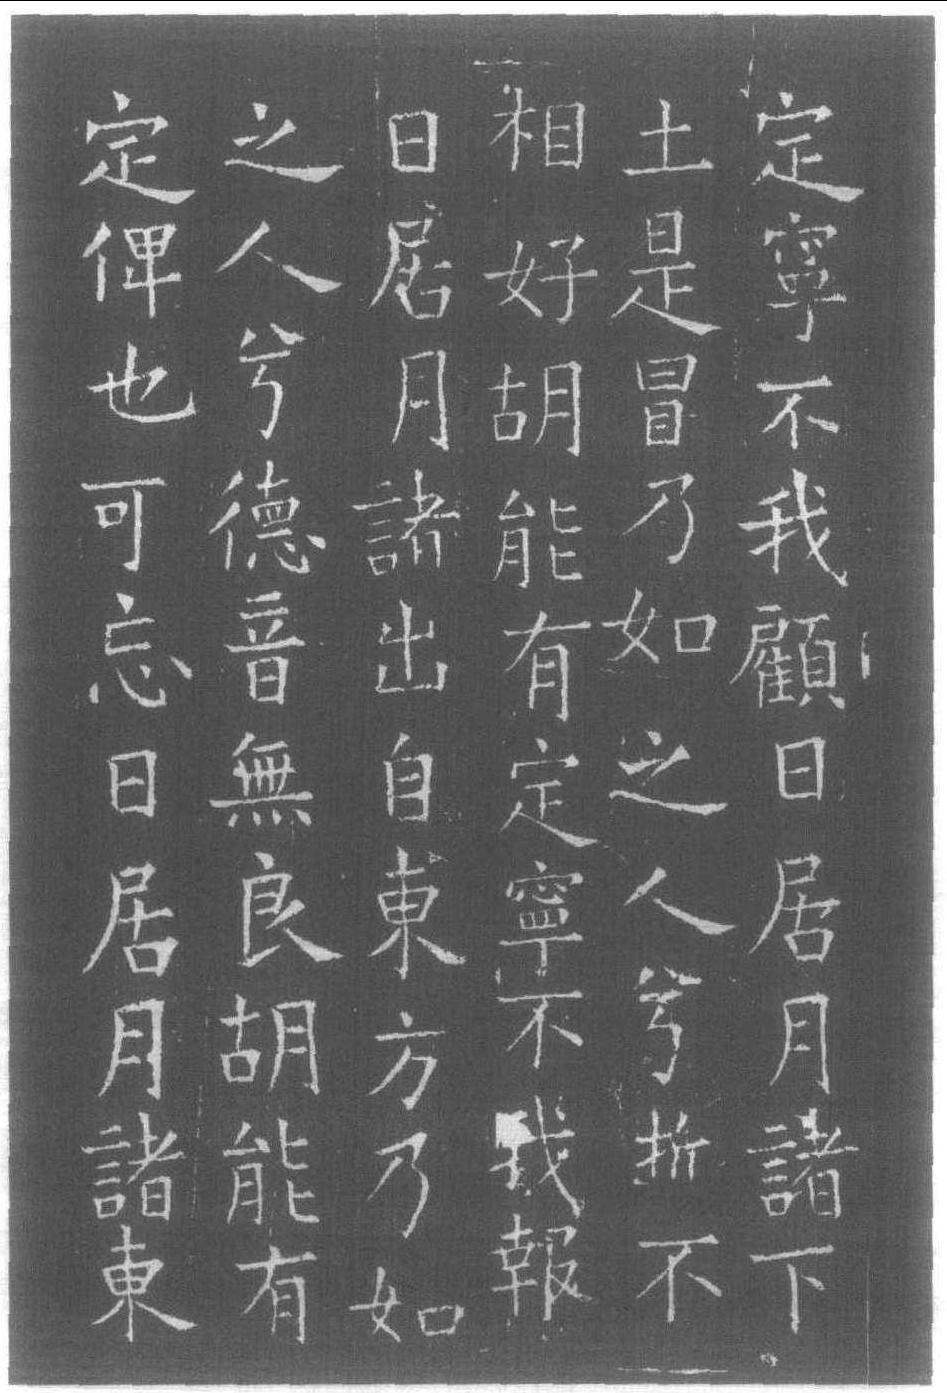 定寧不我顧日居月諸下
土是冒乃如之人兮逝不
相好胡能有定寧不我報
日居月諸出自東方乃如
之人兮德音無良胡能有
定俾也可忘日居月諸東